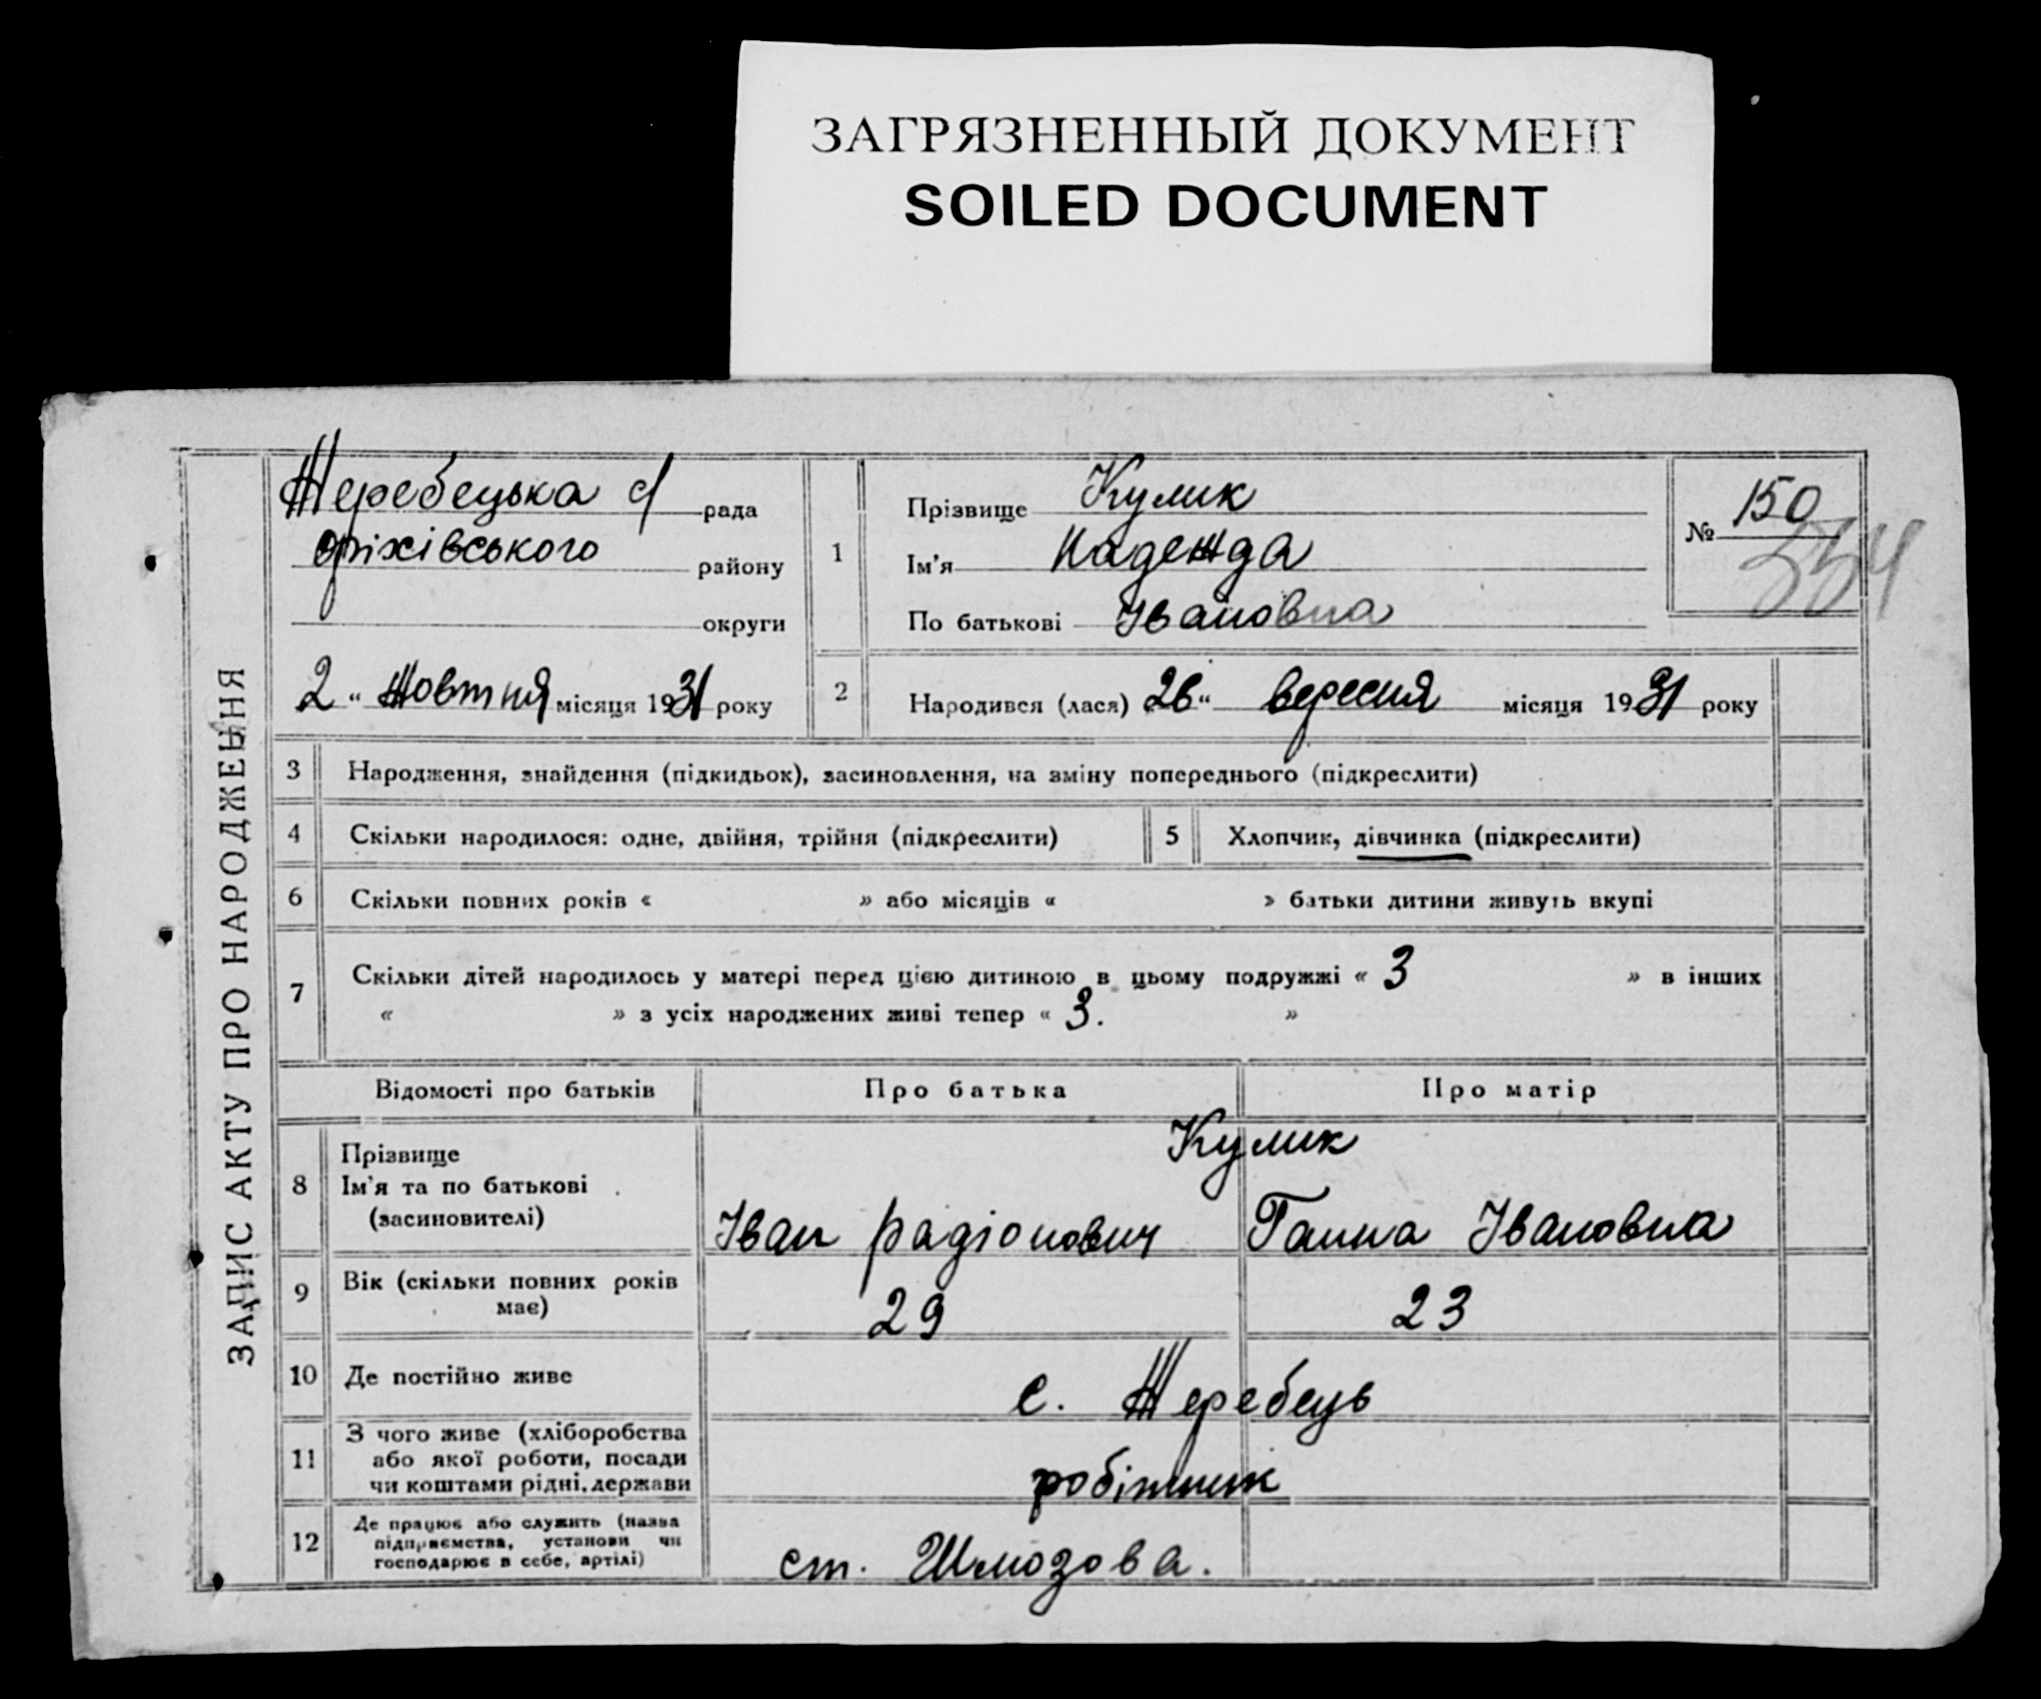 ЗАГРЯЗНЕННЫЙ ДОКУМЕНТ
SOILED DOCUMENT
ЗАПИС АКТУ ПРО НАРОДЖЕННЯ
Жеребецька с/ рада
оріхівського району
округи
2 " жовтня місяця 1931 року
1
Прізвище Кулик
Ім'я Надежда
По батькові Івановна
№ 150
554
2 Народився (лася) 26 " вересня місяця 1931 року
3 Народження, знайдення (підкидьок), засиновлення, на зміну попереднього (підкреслити)
4 Скільки народилося: одне, двійня, трійня (підкреслити) 5 Хлопчик, дівчинка (підкреслити)
6 Скільки повних років « » або місяців « » батьки дитини живуть вкупі
7 Скільки дітей народилось у матері перед цією дитиною в цьому подружжі « 3 » в інших
« » з усіх народжених живі тепер « 3. »
Відомості про батьків Про батька Про матір
8 Прізвище Кулик
Ім'я та по батькові
(засиновителі) Іван Радіонович Ганна Івановна
9 Вік (скільки повних років
має) 29 23
10 Де постійно живе с. Жеребець
11 З чого живе (хліборобства
або якої роботи, посади
чи коштами рідні, держави робітник
12 Де працює або служить (назва
підприємства, установи чи
господарює в себе, артілі) ст.